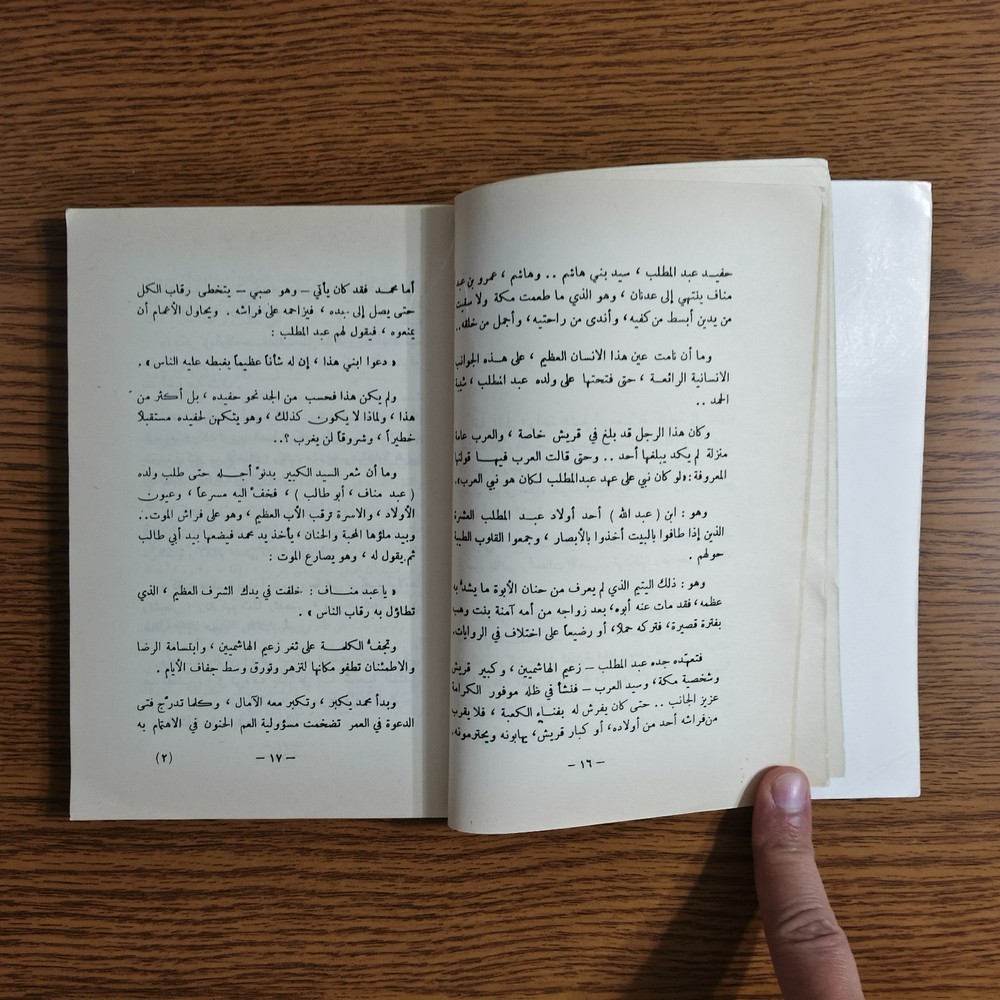 حفيد عبد المطلب ، سيد بني هاشم .. وهاشم ، عمرو بن عبد
مناف ينتهي إلى عدنان ، وهو الذي ما طعمت مكة ولا سقيت
من يدين أبسط من كفيه ، وأندى من راحتيه ، وأجمل من خلقه ..
وما أن نامت عين هذا الانسان العظيم ، على هذه الجوانب
الانسانية الرائعة ، حتى فتحتها على ولده عبد المطلب ، شيبة
الحمد ..
وكان هذا الرجل قد بلغ في قريش خاصة ، والعرب عامة
منزلة لم يكد يبلغها أحد .. وحتى قالت العرب فيها قولتها
المعروفة : «لو كان نبي على عهد عبد المطلب لكان هو نبي العرب».
وهو : ابن ( عبد الله ) أحد أولاد عبد المطلب العشرة
الذين إذا طافوا بالبيت أخذوا بالأبصار ، وجمعوا القلوب الطيبة
حولهم .
وهو : ذلك اليتيم الذي لم يعرف من حنان الأبوة ما يشدّ به
عظمه ، فقد مات عنه أبوه، بعد زواجه من أمه آمنة بنت وهب
بفترة قصيرة، فتركه حملاً، أو رضيعاً على اختلاف في الروايات.
فتعهّده جده عبد المطلب – زعيم الهاشميين ، وكبير قريش
وشخصية مكة، وسيد العرب – فنشأ في ظله موفور الكرامة
عزيز الجانب .. حتى كان يفرش له بفناء الكعبة ، فلا يقرب
من فراشه أحد من أولاده، أو كبار قريش، يهابونه ويحترمونه.
– ١٦ –
أما محمد فقد كان يأتي – وهو صبي – يتخطى رقاب الكل
حتى يصل إلى جده ، فيزاحمه على فراشه . ويحاول الأعمام أن
يمنعوه ، فيقول لهم عبد المطلب :
« دعوا ابني هذا ، إن له شأناً عظيماً يغبطه عليه الناس » .
ولم يكن هذا فحسب من الجد نحو حفيده ، بل أكثر من
هذا ، ولماذا لا يكون كذلك ، وهو يتكهن لحفيده مستقبلاً
خطيراً ، وشروقاً لن يغرب ؟..
وما أن شعر السيد الكبير بدنوّ أجله حتى طلب ولده
( عبد مناف ، أبو طالب ) ، فخفّ اليه مسرعاً ، وعيون
الأولاد ، والاسرة ترقب الأب العظيم ، وهو على فراش الموت ..
وبيد ملؤها المحبة والحنان ، يأخذ يد محمد فيضعها بيد أبي طالب
ثم يقول له ، وهو يصارع الموت :
« يا عبد مناف : خلفت في يدك الشرف العظيم ، الذي
تطاؤل به رقاب الناس » .
وتجفّ الكلمة على ثغر زعيم الهاشميين ، وابتسامة الرضا
والاطمئنان تطفو مكانها لتزهر وتورق وسط جفاف الأيام .
وبدأ محمد يكبر ، وتكبر معه الآمال ، وكلما تدرّج فتى
الدعوة في العمر تضخمت مسؤولية العم الحنون في الاهتمام به
– ١٧ –
(٢)